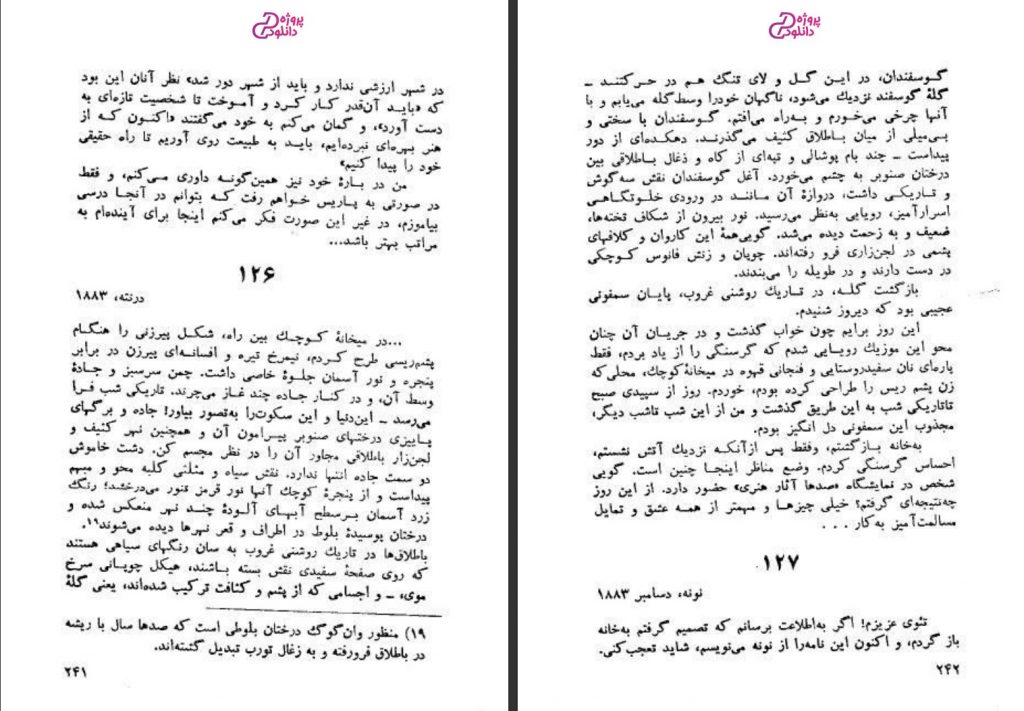 پروژه
دانلود
در شهر ارزشی ندارد و باید از شهر دور شد» نظر آنان این بود
که «باید آن‌قدر کار کرد و آموخت تا شخصیت تازه‌ای به
دست آورد»، و گمان می‌کنم به خود می‌گفتند «اکنون که از
هنر بهره‌ای نبرده‌ایم، باید به طبیعت روی آوریم تا راه حقیقی
خود را پیدا کنیم»
من در بارهٔ خود نیز همین‌گونه داوری می‌کنم، و فقط
در صورتی به پاریس خواهم رفت که بتوانم در آنجا درسی
بیاموزم، در غیر این صورت فکر می‌کنم اینجا برای آینده‌ام به
مراتب بهتر باشد...
۱۲۶
درنته، ۱۸۸۳
...در میخانهٔ کوچک بین راه، شکل پیرزنی را هنگام
پشم‌ریسی طرح کردم، نیمرخ تیره و افسانه‌ای پیرزن در برابر
پنجره و نور آسمان جلوهٔ خاصی داشت. چمن سرسبز و جادهٔ
وسط آن، و در کنار جاده چند غاز می‌چرند. تاریکی شب فرا
می‌رسد ــ این‌دنیا و این سکوت‌را به‌تصور بیاور! جاده و برگهای
پاییزی درختهای صنوبر پیرامون آن و همچنین نهر کثیف و
لجن‌زار باطلاقی مجاور آن را در نظر مجسم کن. دشت خاموش
دو سمت جاده انتها ندارد. نقش سیاه و مثلثی کلبه محو و مبهم
پیداست و از پنجرهٔ کوچک آنها نور قرمز تنور می‌درخشد؛ رنگ
زرد آسمان برسطح آبهای آلودهٔ چند نهر منعکس شده و
درختان پوسیدهٔ بلوط در اطراف و قعر نهرها دیده می‌شوند۱۹.
باطلاق‌ها در تاریک روشنی غروب به سان رنگهای سیاهی هستند
که روی صفحهٔ سفیدی نقش بسته باشند، هیکل چوپانی سرخ
موی، ــ و اجسامی که از پشم و کثافت ترکیب شده‌اند، یعنی گلهٔ
۱۹) منظور وان‌گوگ درختان بلوطی است که صدها سال با ریشه
در باطلاق فرورفته و به زغال تورب تبدیل گشته‌اند.
۲۴۱
پروژه
دانلود
گوسفندان، در این گل و لای قنگ هم در حرکتند ــ
گلهٔ گوسفند نزدیک می‌شود، ناگهان خودرا وسط‌گله می‌یابم و با
آنها چرخی می‌خورم و به‌راه می‌افتم. گوسفندان با سختی و
بی‌میلی از میان باطلاق کثیف می‌گذرند. دهکده‌ای از دور
پیداست ــ چند بام پوشالی و تپه‌ای از کاه و ذغال باطلاقی بین
درختان صنوبر به چشم می‌خورد. آغل گوسفندان نقش سه‌گوش
و تاریکی داشت، دروازهٔ آن مانند در ورودی خلوتگاهی
اسرارآمیز، رویایی به‌نظر می‌رسید. نور بیرون از شکاف تخته‌ها،
ضعیف و به زحمت دیده می‌شد. گویی‌همهٔ این کاروان و کلافهای
پشمی در لجن‌زاری فرو رفته‌اند. چوپان و زنش فانوس کوچکی
در دست دارند و در طویله را می‌بندند.
بازگشت گله، در تاریک روشنی غروب، پایان سمفونی
عجیبی بود که دیروز شنیدم.
این روز برایم چون خواب گذشت و در جریان آن چنان
محو این موزیک رویایی شدم که گرسنگی را از یاد بردم، فقط
پاره‌ای نان سفیدروستایی و فنجانی قهوه در میخانهٔ‌کوچک، محلی‌که
زن پشم ریس را طراحی کرده بودم، خوردم. روز از سپیدی صبح
تاتاریکی شب به این طریق گذشت و من از این شب تاشب دیگر،
مجذوب این سمفونی دل انگیز بودم.
به‌خانه بازگشتم، وفقط پس ازآنکه نزدیک آتش نشستم،
احساس گرسنگی کردم. وضع مناظر اینجا چنین است. گویی
شخص در نمایشگاه «صدها آثار هنری» حضور دارد. از این روز
چه‌نتیجه‌ای گرفتم؟ خیلی چیزها و مهمتر از همه عشق و تمایل
مسالمت‌آمیز به‌کار . . .
۱۲۷.
نونه، دسامبر ۱۸۸۳
تئوی عزیزم! اگر به‌اطلاعت برسانم که تصمیم گرفتم به‌خانه
باز گردم، و اکنون این نامه‌را از نونه می‌نویسم، شاید تعجب‌کنی.
۲۴۲